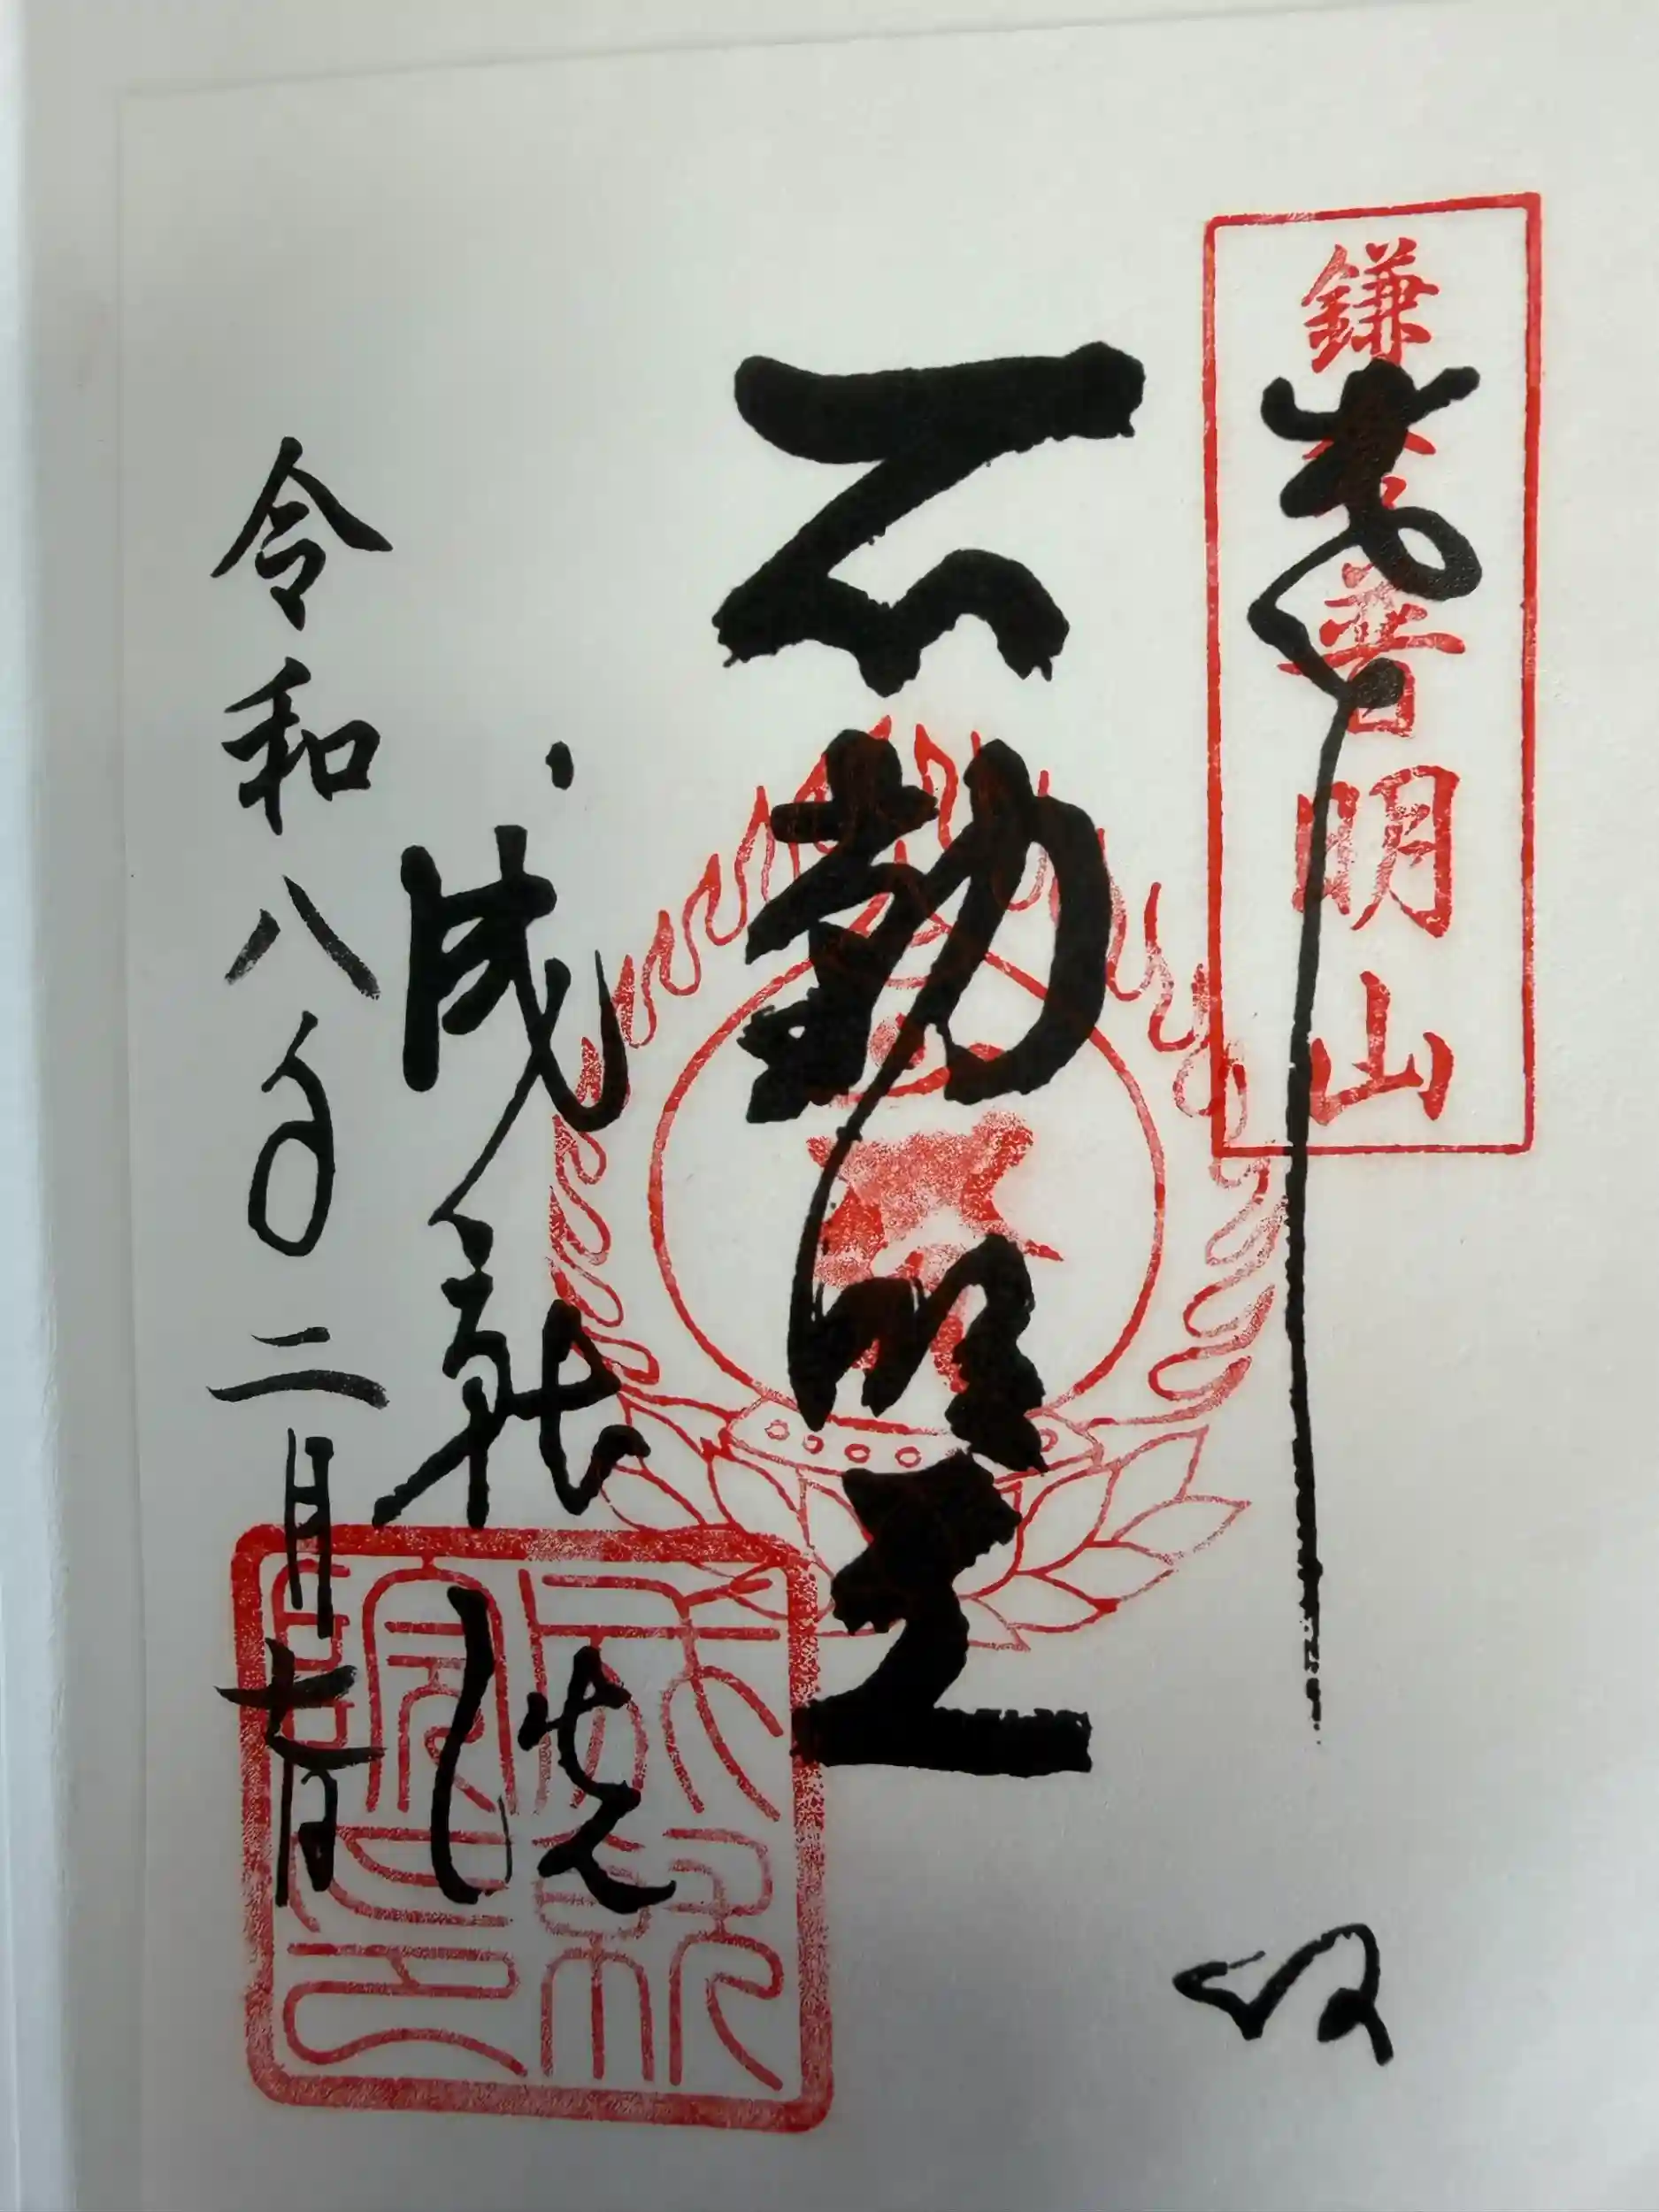 鎌倉普明山
奉拝
不動明王
成就院
令和八年二月七日